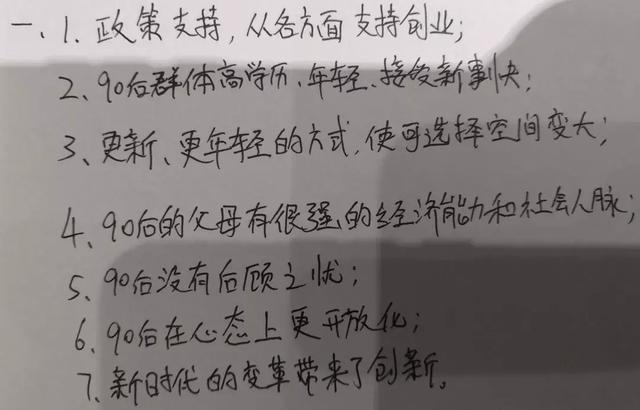 一、1、政策支持，从各方面支持创业；
2、90后群体高学历、年轻、接受新事快；
3、更新、更年轻的方式，使可选择空间变大；
4、90后的父母有很强的经济能力和社会人脉；
5、90后没有后顾之忧；
6、90后在心态上更开放化；
7、新时代的变革带来了创新。